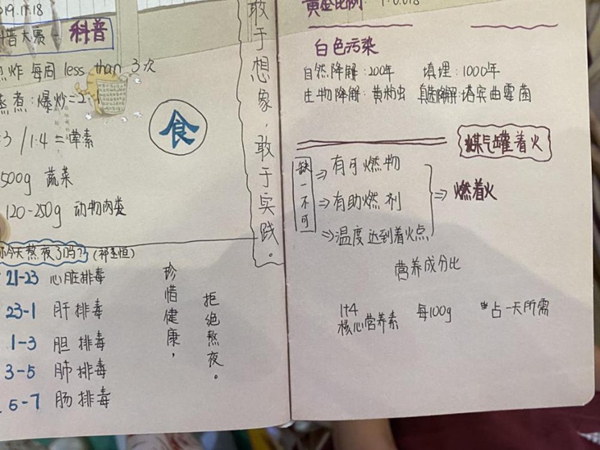 019.11.18
科普大赛 — 科普
煎炸 每周 less than 3次
蒸煮：爆炒=2:1
:3 / 1:4 = 荤素
500g 蔬菜
120-250g 动物肉类
食
你今天熬夜了吗？
21-23 心脏排毒
23-1 肝排毒
1-3 胆排毒
3-5 肺排毒
5-7 肠排毒
珍惜健康，
拒绝熬夜。
敢于想象，敢于实践。
黄金比例：1:0.618
白色污染
自然降解：200年 填埋：1000年
生物降解：黄粉虫 真菌降解：塔宾曲霉菌
煤气罐着火
缺一不可
⇒有可燃物
⇒有助燃剂
⇒温度达到着火点
⇒燃着火
营养成分比
1+4
核心营养素 每100g *占一天所需